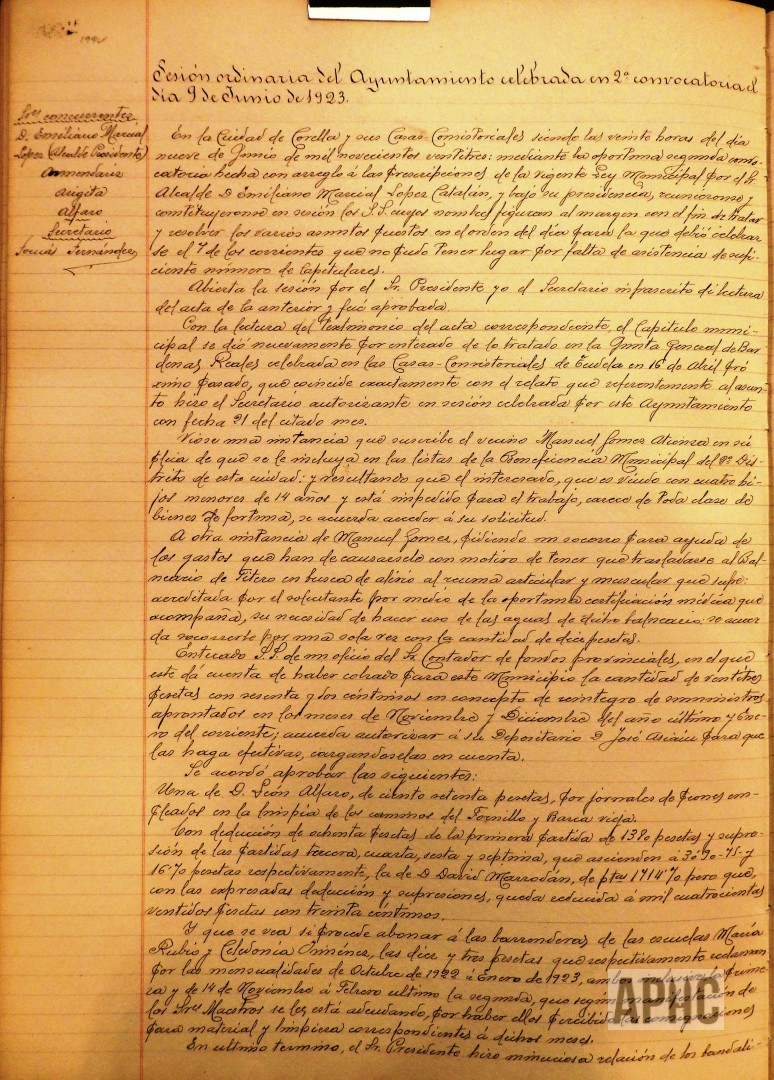 Sesión ordinaria del Ayuntamiento celebrada en 2ª convocatoria el
día 9 de Junio de 1923.
Sres concurrentes
D. Emiliano Marcial
Lopez (Alcalde Presidente)
Armendariz
Augita
Alfaro
Secretario
Tomás Fernández
En la Ciudad de Corella y sus Casas-Consistoriales siendo las veinte horas del día
nueve de Junio de mil novecientos ventitres: mediante la oportuna segunda convo-
catoria hecha con arreglo á las prescripciones de la vigente Ley Municipal por el Sr.
Alcalde D Emiliano Marcial Lopez Catalán, y bajo su presidencia, reunieronse y
constituyeronse en sesión los S.S. cuyos nombres figuran al margen con el fin de tratar
y resolver los varios asuntos puestos en el orden del día para la que debió celebrar-
se el 7 de los corrientes que no pudo tener lugar por falta de asistencia de sufi-
ciente número de capitulares.
Abierta la sesión por el Sr. Presidente yo el Secretario infrascrito di lectura
del acta de la anterior y fué aprobada.
Con la lectura del testimonio del acta correspondiente, el Capitulo muni-
cipal se dió nuevamente por enterado de lo tratado en la Junta General de Bar-
denas Reales celebrada en las Casas-Consistoriales de Tudela en 16 de Abril pró-
ximo pasado, que coincide exactamente con el relato que referentemente al asun-
to hizo el Secretario autorizante en sesión celebrada por este Ayuntamiento
con fecha 21 del citado mes.
Vióse una instancia que suscribe el vecino Manuel Gomez Atienza en sú-
plica de que se le incluya en las listas de la Beneficencia Municipal del 2º Dis-
trito de esta ciudad: y resultando que el interesado, que es viudo con cuatro hi-
jos menores de 14 años y está impedido para el trabajo, carece de toda clase de
bienes de fortuna, se acuerda acceder á su solicitud.
A otra instancia de Manuel Gomez, pidiendo un socorro para ayuda de
los gastos que han de causarsele con motivo de tener que trasladarse al Bal-
neario de Fitero en busca de alivio al reuma articular y muscular que sufre:
acreditada por el solicitante por medio de la oportuna certificación médica que
acompaña, su necesidad de hacer uso de las aguas de dicho balneario: se acuer-
da socorrerle por una sola vez con la cantidad de diez pesetas.
Enterado S.S. de un oficio del Sr. Contador de fondos provinciales, en el que
este dá cuenta de haber cobrado para este Municipio la cantidad de ventitres
pesetas con sesenta y dos céntimos en concepto de reintegro de suministros
aprontados en los meses de Noviembre y Diciembre del año último y Ene-
ro del corriente; acuerda autorizar á su Depositario D José Asiáin para que
las haga efectivas, cargandoselas en cuenta.
Se acordó aprobar las siguientes:
Una de D. León Alfaro, de ciento setenta pesetas, por jornales de peones em-
pleados en la limpia de los caminos del Tornillo y Barca vieja.
Con deducción de ochenta pesetas de la primera partida de 1380 pesetas y supre-
sión de las partidas tercera, cuarta, sesta y septima, que ascienden a
pesetas respectivamente, la de D. David Marrodán, de ptas 1714'70 pero que,
con las expresadas deducción y supresiones, queda reducida á mil cuatrocientas
ventidos pesetas con treinta céntimos.
Y que se vea si procede abonar á las barrenderas de las escuelas María
Rubio y Celedonia Jiménez, las diez y tres pesetas que respectivamente reclaman
por las mensualidades de Octubre de 1922 á Enero de 1923, ambos inclusive la prime-
ra y de 14 de Noviembre á Febrero ultimo la segunda, que según manifestación de
los Sres Maestros se les está adeudando, por haber ellos percibido las consignaciones
para material y limpieza correspondientes á dichos meses.
En ultimo termino, el Sr. Presidente hizo minuciosa relación de los
APYC